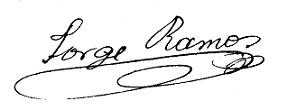 Jorge Ramos